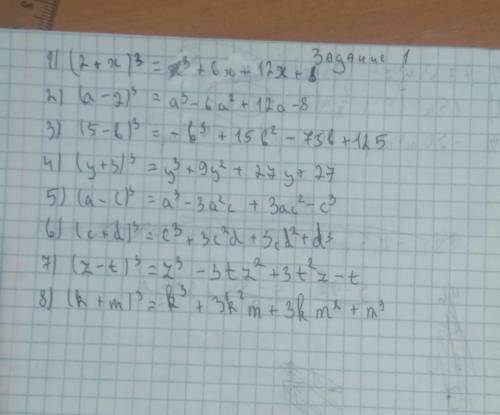 Задание 1
1) (2+x)³ = x³ + 6x + 12x + 8
2) (a-2)³ = a³ - 6a² + 12a - 8
3) (5-b)³ = -b³ + 15b² - 75b + 125
4) (y+3)³ = y³ + 9y² + 27y + 27
5) (a-c)³ = a³ - 3a²c + 3ac² - c³
6) (c+d)³ = c³ + 3c³d + 3cd² + d³
7) (z-t)³ = z³ - 3tz² + 3t²z - t
8) (k+m)³ = k³ + 3k²m + 3km² + m³